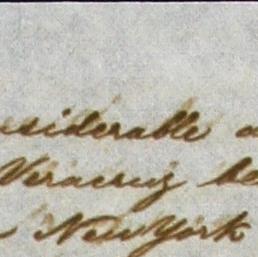 nsiderable a
Veracruz be
New York